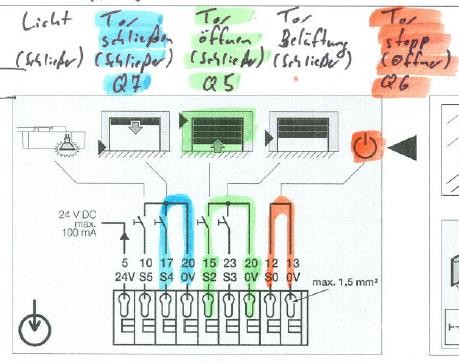 Licht Tor Tor Tor Tor
schließen öffnen Belüftung stopp
(Schließer) (Schließer) (Schließer) (Schließer) (Öffner)
Q7 Q5 Q6
24 V DC
max.
100 mA
5 10 17 20 15 23 20 12 13
24V S5 S4 0V S2 S3 0V S0 0V
max. 1,5 mm²